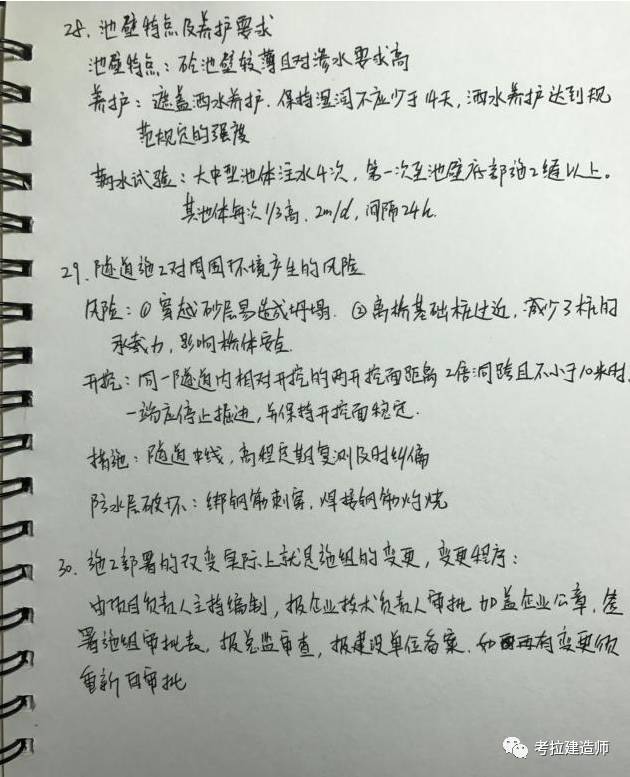 28. 池壁特点及养护要求
池壁特点：砼池壁较薄且对渗水要求高
养护：遮盖洒水养护. 保持湿润不应少于14天, 洒水养护达到规
范规定的强度
满水试验：大中型池体注水4次, 第一次至池壁底部施工缝以上。
其池体每次1/3高. 2m/d, 间隔24h.
29. 隧道施工对周围环境产生的风险
风险：① 穿越砂层易造成坍塌. ② 离桥基础桩过近, 减少了桩的
承载力, 影响桥体安全.
开挖：同一隧道内相对开挖的两开挖面距离2倍洞跨且不小于10米时.
一端应停止掘进, 并保持开挖面稳定.
措施：隧道中线, 高程定期复测及时纠偏
防水层破坏：绑钢筋刺穿, 焊接钢筋灼烧
30. 施工部署的改变实际上就是施组的变更, 变更程序：
由项目负责人主持编制, 报企业技术负责人审批 加盖企业公章, 签
署施组审批表, 报总监审查, 报建设单位备案. 如再有变更须
重新审批
考拉建造师